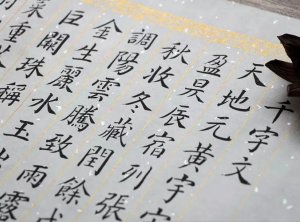 千字文
天地元黃宇
盈昃辰宿列張
秋收冬藏閏餘
調陽雲騰致雨露
金生麗水玉出
巨闕珠稱
菜重芥